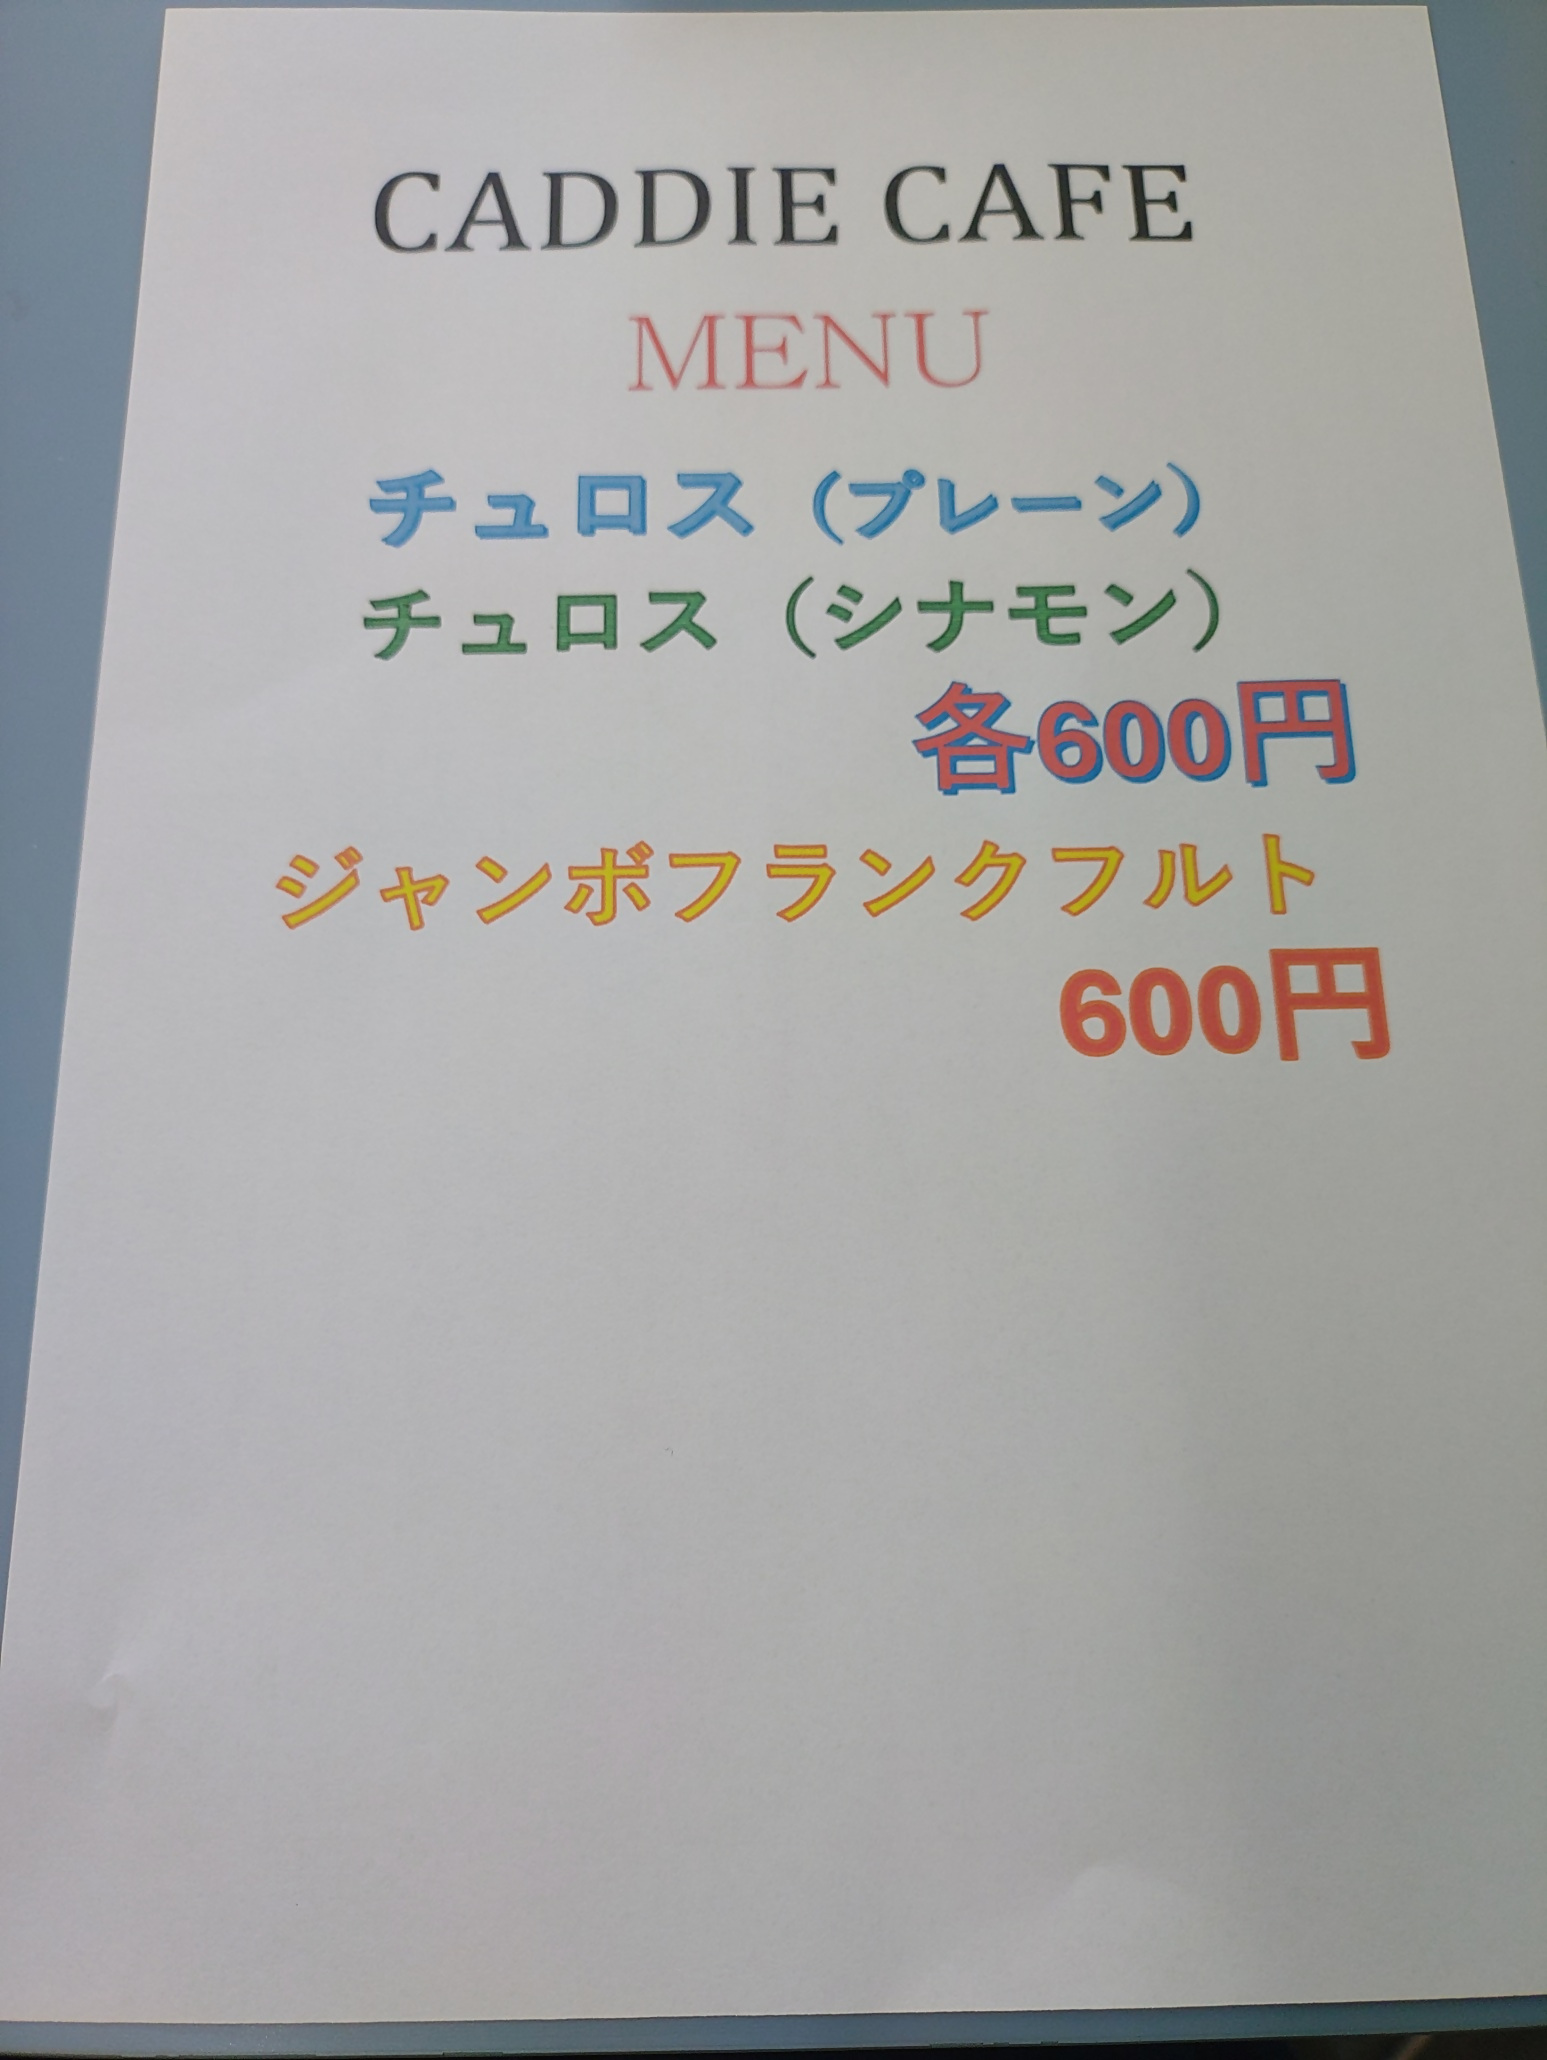 CADDIE CAFE
MENU
チュロス（プレーン）
チュロス（シナモン）
各600円
ジャンボフランクフルト
600円